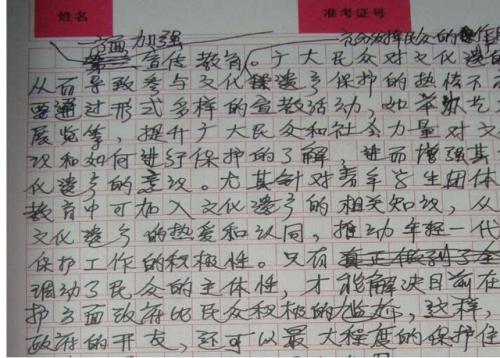 姓名 准考证号
方面加强 充分发挥民众的作用
宣传教育。广大民众对文化遗
从而导致参与文化遗产保护的热情不
要通过形式多样的宣教活动，如举办艺
展览等，提升广大民众和社会力量对文
识和如何进行保护的了解，进而增强其
化遗产的意识。尤其针对青年学生团体
教育中可加入文化遗产的相关知识，从
文化遗产的热爱和认同，推动年轻一代
保护工作的积极性。只有真正做到了全
调动了民众的主体性，才能解决目前在
护方面政府比民众积极的尴尬，这样，
政府的开支，还可以最大程度的保护住